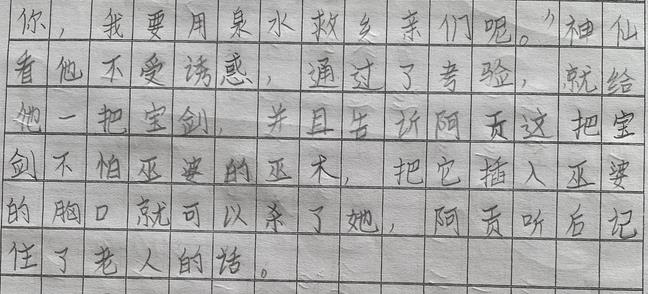 你，我要用泉水救乡亲们呢。”神仙
看他不受诱惑，通过了考验，就给
他一把宝剑，并且告诉阿贡这把宝
剑不怕巫婆的巫术，把它插入巫婆
的胸口就可以杀了她，阿贡听后记
住了老人的话。